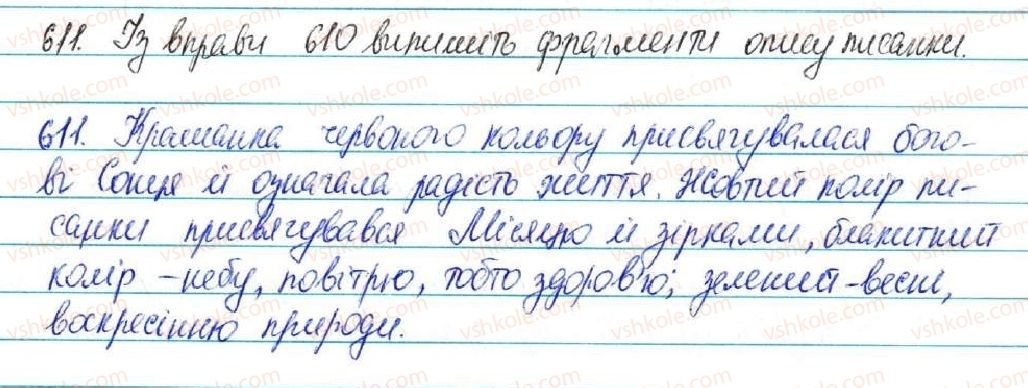 611. Із вправи 610 випишіть фрагменти опису писанки.
611. Крашанка червоного кольору присвячувалася бого-
ві Сонця й означала радість життя. Жовтий колір пи-
санки присвячувався Місяцю й зірками, блакитний
колір - небу, повітрю, тобто здоров'ю; зелений - весні,
воскресінню природи.